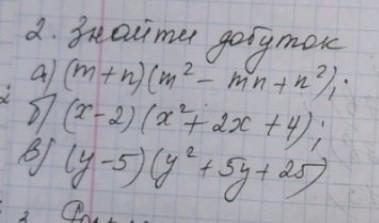 2. Знайти добуток
а) (m+n)(m² - mn + n²);
б) (x-2)(x² + 2x + 4);
в) (y-5)(y² + 5y + 25)